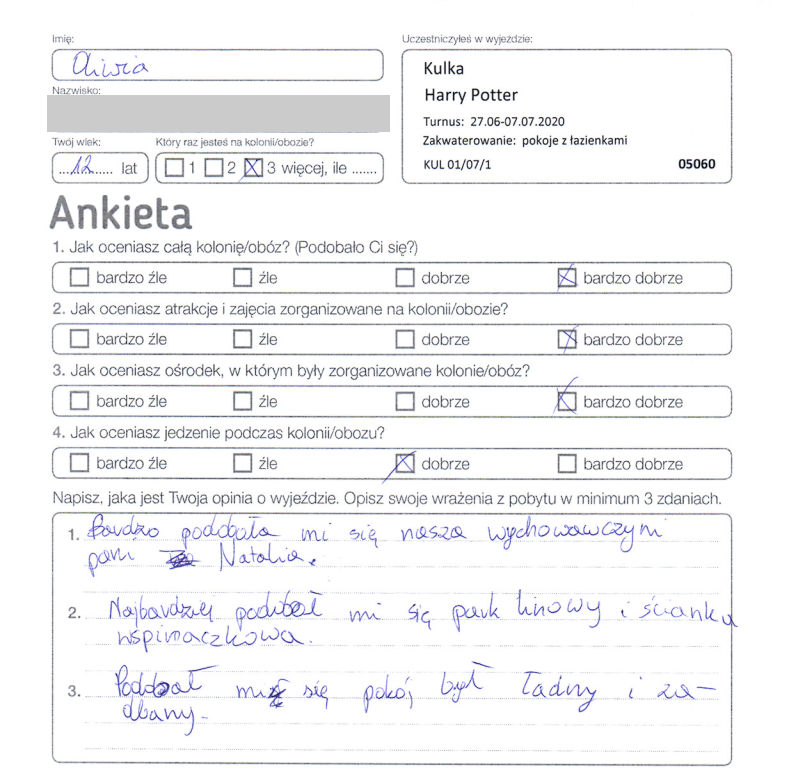 Imię:
Oliwia
Nazwisko:
Twój wiek:
Który raz jesteś na kolonii/obozie?
...12...... lat
1 2 3 więcej, ile .......
Uczestniczyłeś w wyjeździe:
Kulka
Harry Potter
Turnus: 27.06-07.07.2020
Zakwaterowanie: pokoje z łazienkami
KUL 01/07/1 05060
Ankieta
1. Jak oceniasz całą kolonię/obóz? (Podobało Ci się?)
bardzo źle źle dobrze bardzo dobrze
2. Jak oceniasz atrakcje i zajęcia zorganizowane na kolonii/obozie?
bardzo źle źle dobrze bardzo dobrze
3. Jak oceniasz ośrodek, w którym były zorganizowane kolonie/obóz?
bardzo źle źle dobrze bardzo dobrze
4. Jak oceniasz jedzenie podczas kolonii/obozu?
bardzo źle źle dobrze bardzo dobrze
Napisz, jaka jest Twoja opinia o wyjeździe. Opisz swoje wrażenia z pobytu w minimum 3 zdaniach.
1. Bardzo poddobała mi się nasza wychowawczyni
pani Natalia.
2. Najbardziej podobał mi się park linowy i ścianka
wspinaczkowa.
3. Poddobał mi się pokój był ładny i za-
dbany.